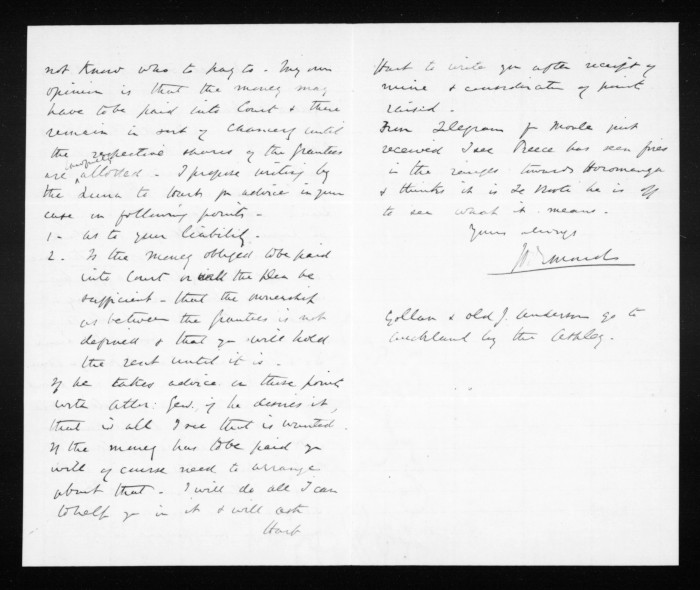 not know who to pay to - My own
opinion is that the money may
have to be paid into Court & there
remain in sort of Chancery until
the respective shares of the grantees
are allotted - I propose writing by
the Luna to Hart for advice in your
case in following points -
1 - as to your liability -
2 - Is the money obliged to be paid
into Court or will the plea be
sufficient - that the ownership
as between the grantees is not
defined & that you will hold
the rent until it is -
If he takes advice on these points
with Atter: Genl. if he desires it,
that is all I see that is wanted.
If the money has to be paid you
will of course need to arrange
about that - I will do all I can
to help you in it & will ask
Hart
Hart to write you after receipt of
mine & consideration of point
raised -
From Telegram fr Moule just
received I see Preece has seen fires
in the ranges towards Horomanga
& thinks it is Te Kooti he is off
to see what it means -
Yours always
Gollan & old J. Anderson go to
Auckland by the Ashley.